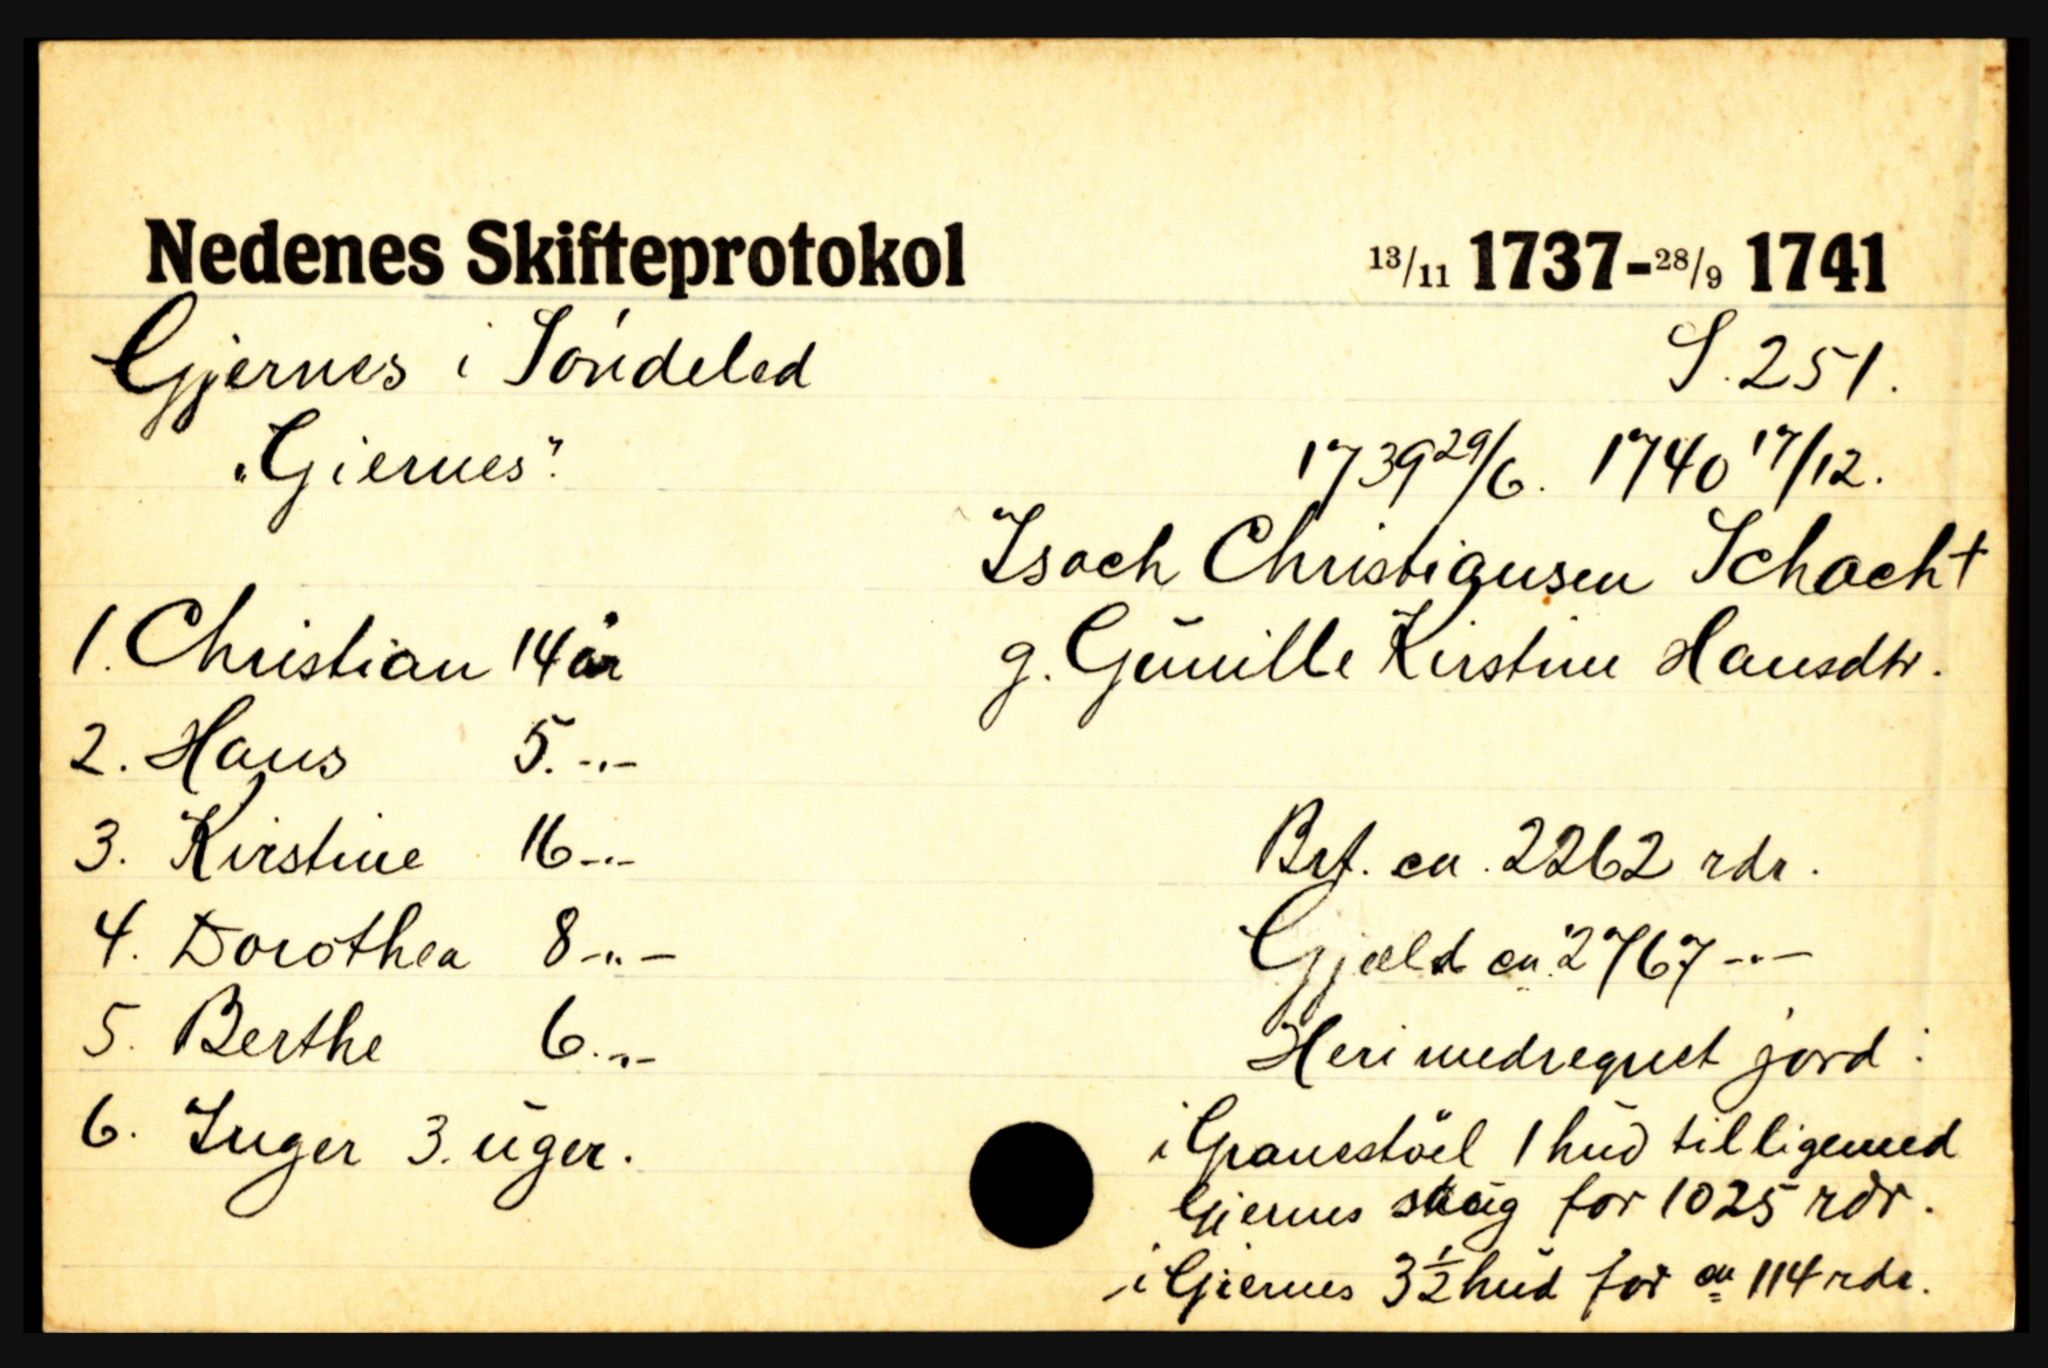 Nedenes Skifteprotokol 13/11 1737-28/9 1741
Gjernes i Söndeled S. 251.
„Giernes". 1739 29/6. 1740 17/12.
Isach Christiansen Schacht
1. Christian 14 år g. Gunille Kirstine Hansdtr.
2. Hans 5. -"-
3. Kirstine 16 -"- Brf. ca. 2262 rdr.
4. Dorothea 8 -"- Gjæld ca. 2767 -"-
5. Berthe 6. -"- Heri medregnet jord:
6. Inger 3. uger. i Granestöel 1 hud tilligemed
Giernes skoug for 1025 rdr.
i Giernes 3 1/2 hud for ca 114 rdr.